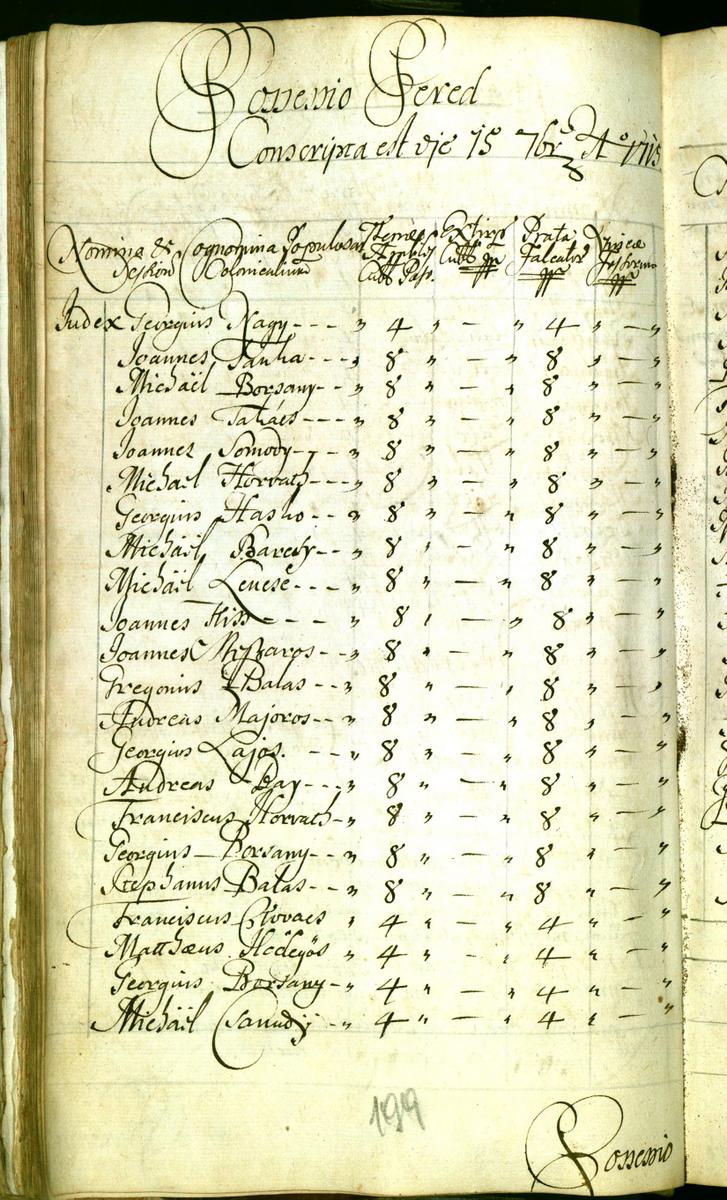 Possessio Pered
Conscripta est die 15 7bris Ao 1715
Nomina & Cognomina Populosar Terræ Extirp Prata Vineæ
Colonicalium Cubb Pos. Cubb Falcator
Judex Georgius Nagy - - - „ 4 „ — „ 4 „ — „
Joannes Tanka - - - „ 8 „ — „ 8 „ — „
Michäel Borsany - - „ 8 „ — „ 8 „ — „
Joannes Takáes - - - „ 8 „ — „ 8 „ — „
Joannes Somody - - „ 8 „ — „ 8 „ — „
Michael Horvath - - „ 8 „ — „ 8 „ — „
Georgius Hasko - - „ 8 „ — „ 8 „ — „
Michäël Baredy - - „ 8 „ — „ 8 „ — „
Michäël Levese - - - „ 8 „ — „ 8 „ — „
Joannes Kiss - - - - „ 8 „ — „ 8 „ — „
Joannes Meszaros - - „ 8 „ — „ 8 „ — „
Gregorius Balas - - „ 8 „ — „ 8 „ — „
Andreas Majoros - - „ 8 „ — „ 8 „ — „
Georgius Lajos. - - - „ 8 „ — „ 8 „ — „
Andreas Bay - - - „ 8 „ — „ 8 „ — „
Franciscus Horvath - „ 8 „ — „ 8 „ — „
Georgius Borsany - - „ 8 „ — „ 8 „ — „
Stephanus Balas - - „ 8 „ — „ 8 „ — „
Franciscus Kovacs „ 4 „ — „ 4 „ — „
Matthæus Hegedös „ 4 „ — „ 4 „ — „
Georgius Borsany - „ 4 „ — „ 4 „ — „
Michäël - „ 4 „ — „ 4 „ — „
199
Possessio